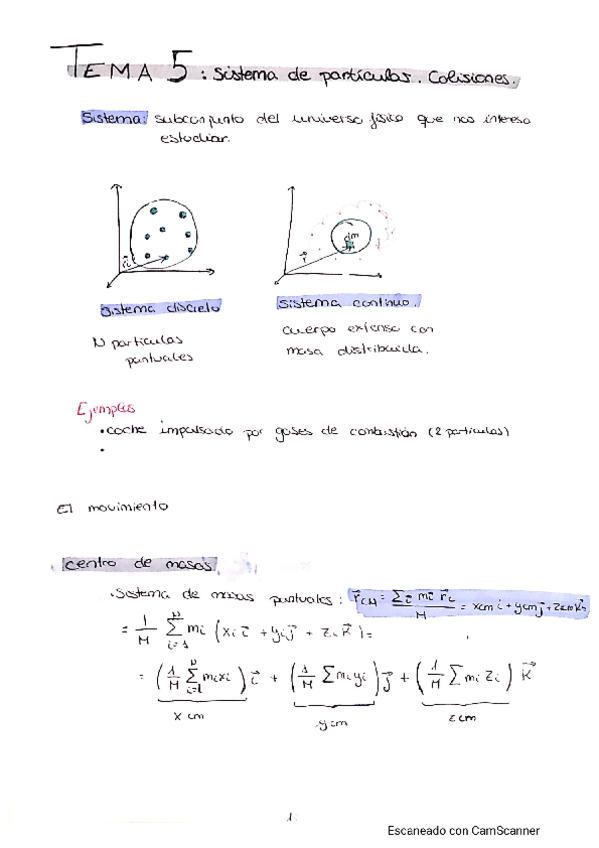 TEMA 5: Sistema de partículas. Colisiones.
Sistema: subconjunto del universo físico que nos interesa
estudiar.
r⃗i
r⃗
dm
Sistema discreto
Sistema continuo.
N partículas
puntuales
cuerpo extenso con
masa distribuida.
Ejemplos
• coche impulsado por gases de combustión (2 partículas)
•
El movimiento
centro de masas
• Sistema de masas puntuales: r⃗CM = Σi mi r⃗i / M = xcm i + ycm j + zcm k
= 1/M Σ(i=1, N) mi (xi i⃗ + yi j⃗ + zi k⃗) =
= (1/M Σ(i=1, N) mi xi) i⃗ + (1/M Σ mi yi) j⃗ + (1/M Σ mi zi) k⃗
x cm
y cm
z cm
Escaneado con CamScanner